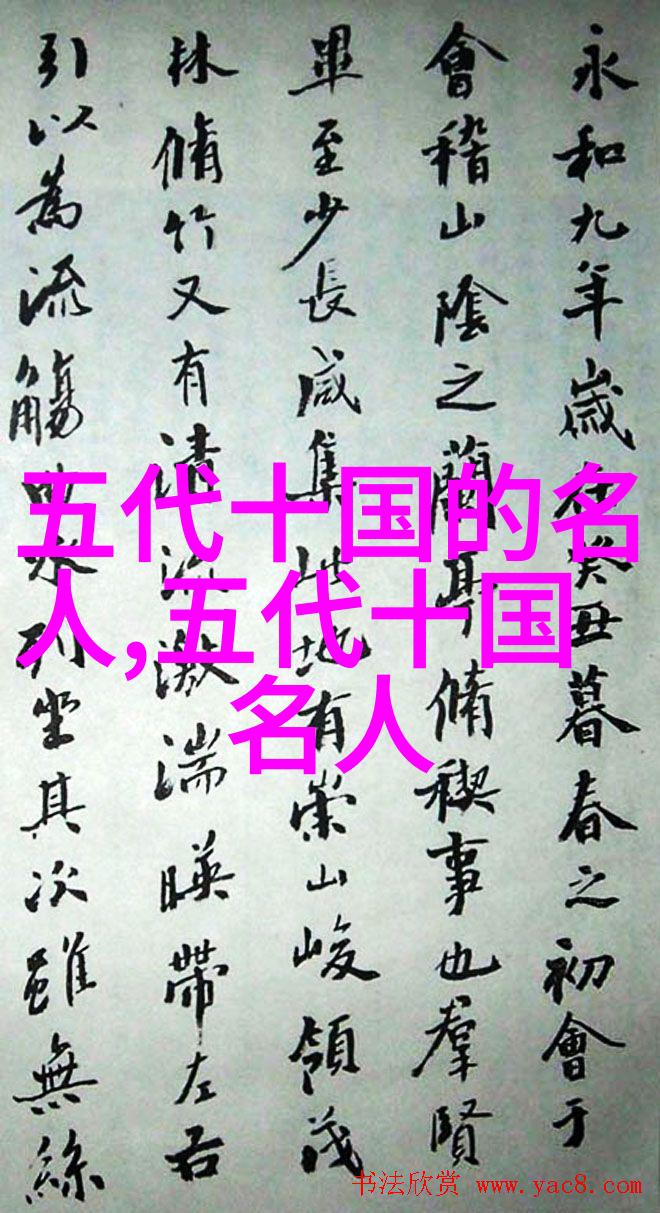 永和九年歲在癸丑暮春之初會于
會稽山陰之蘭亭脩稧事也羣賢
畢至少長咸集此地有崇山峻領茂
林脩竹又有清流激湍暎帶左右
引以為流觴曲水列坐其次雖無絲
五代十国的名
人,五代十国
名人
书法欣赏 www.yac8.com